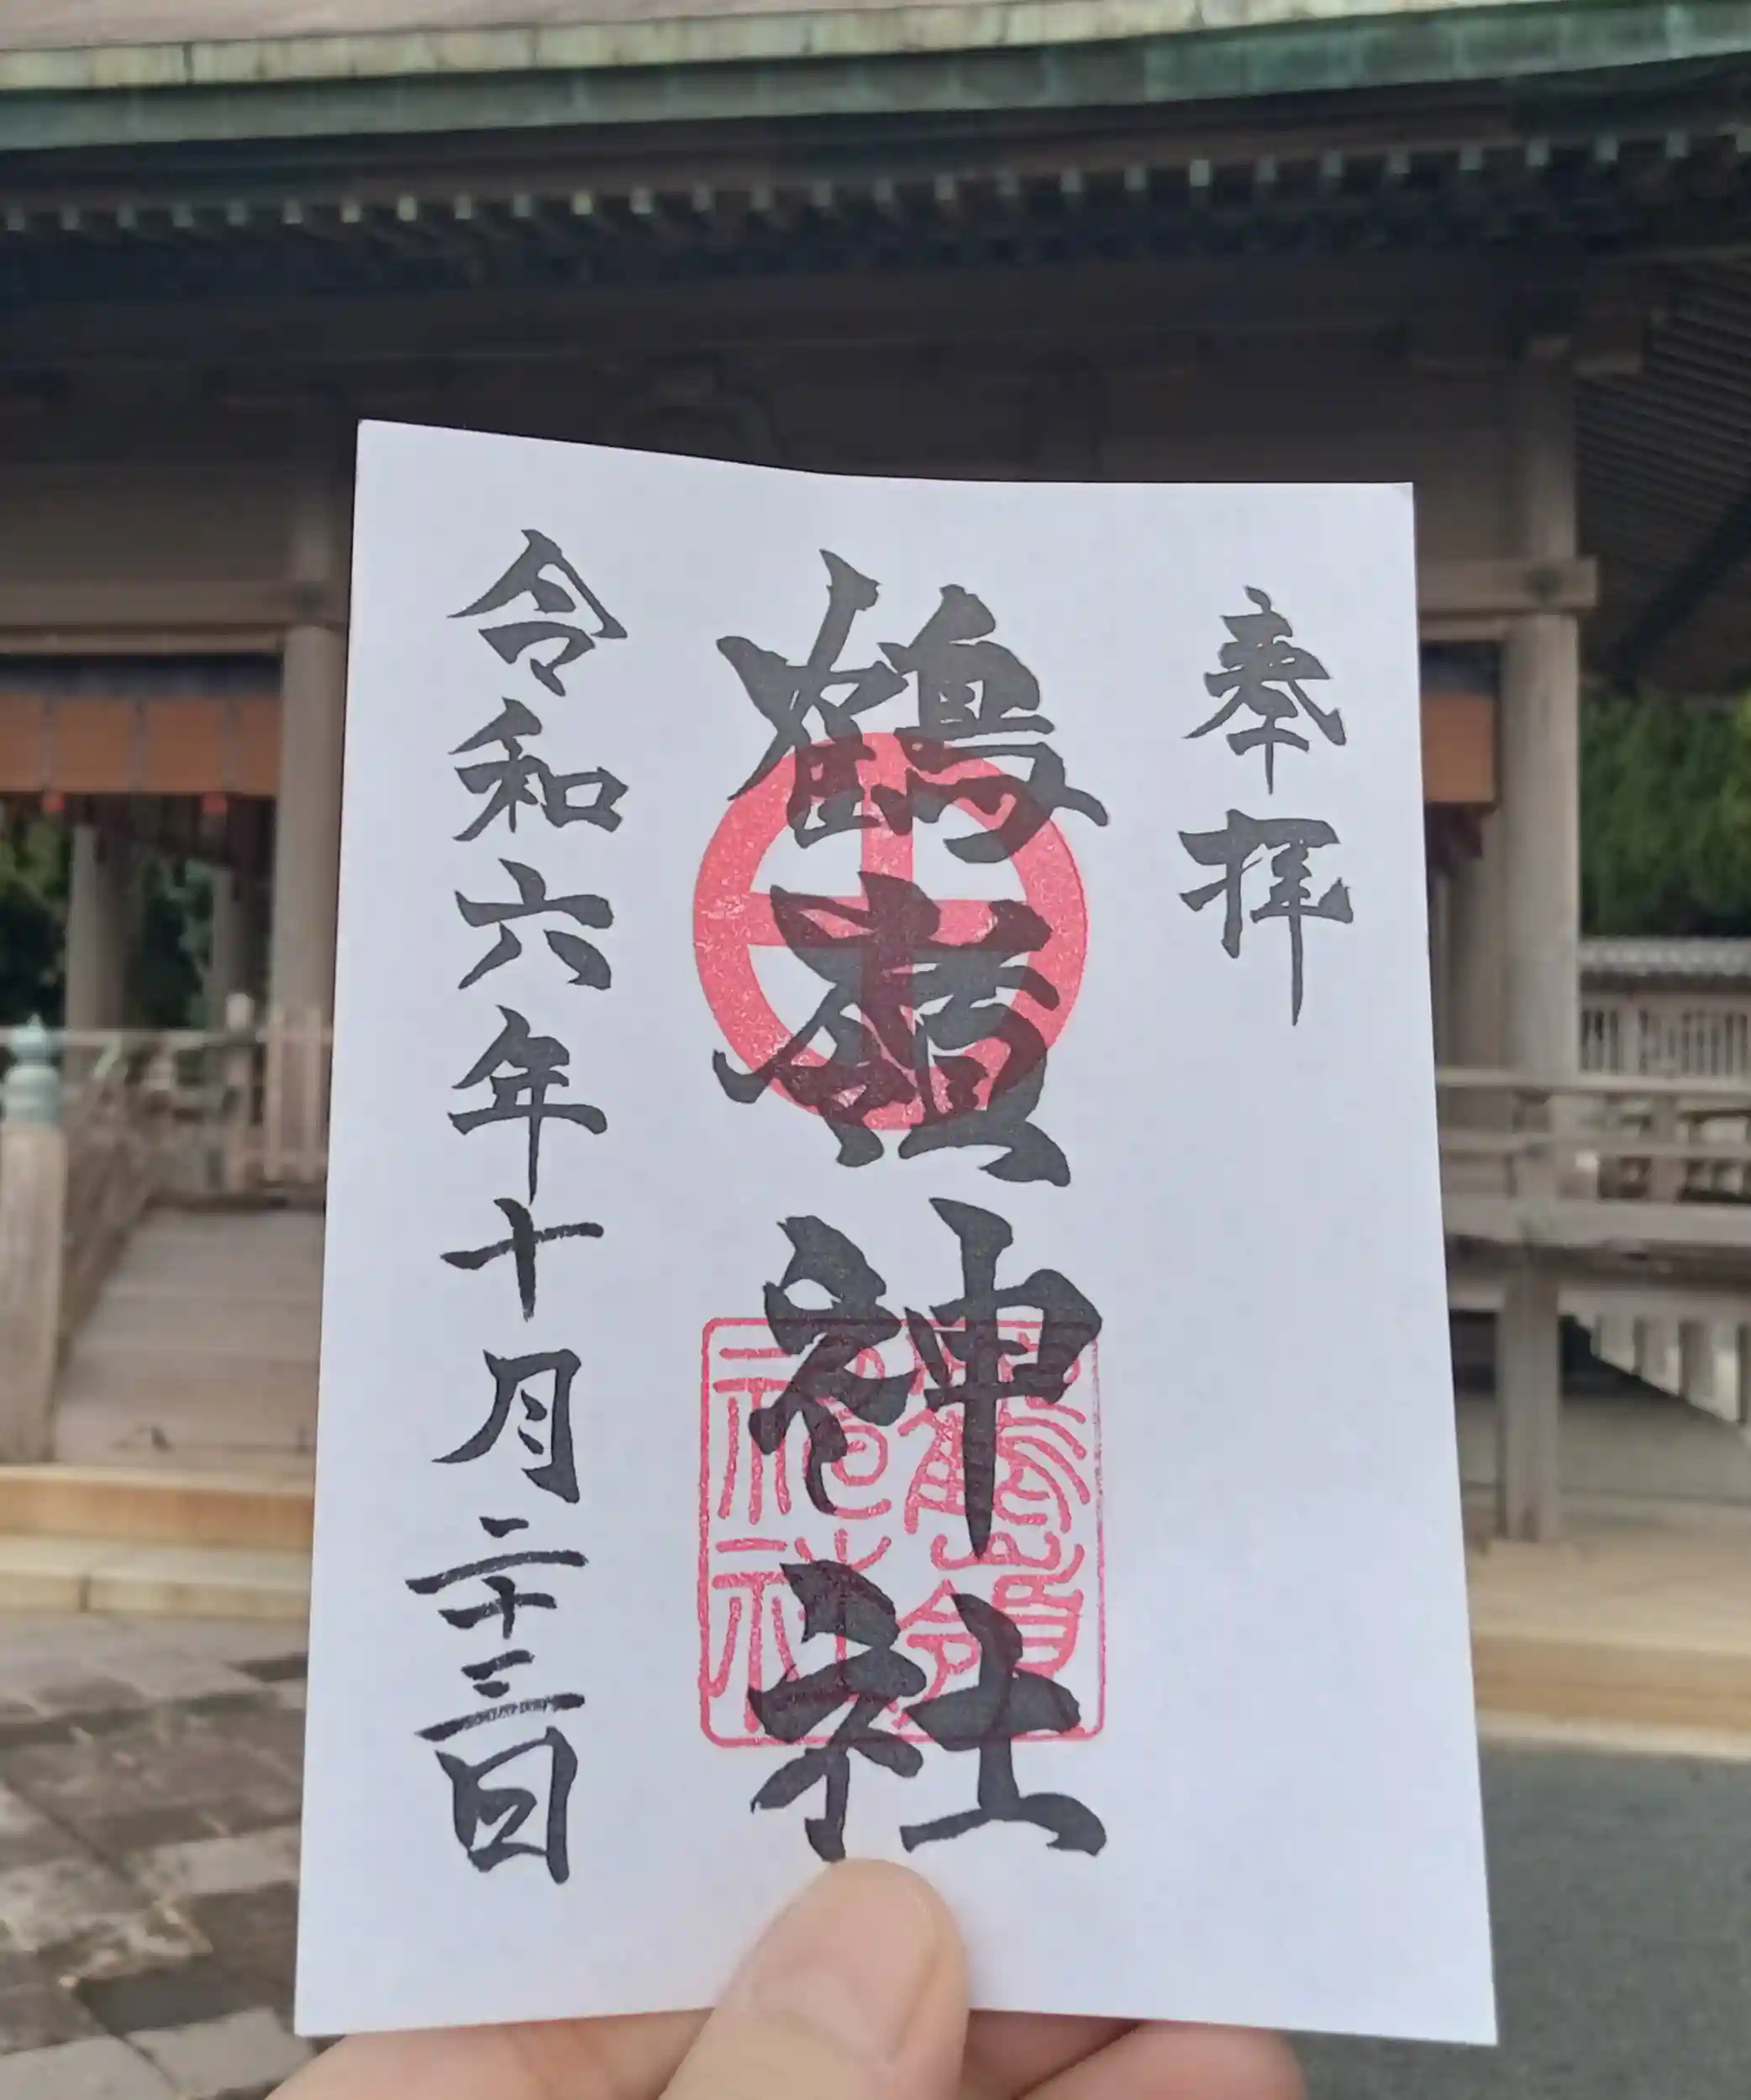 奉拝
鶴嶺神社
令和六年十月二十三日
鶴嶺
神社